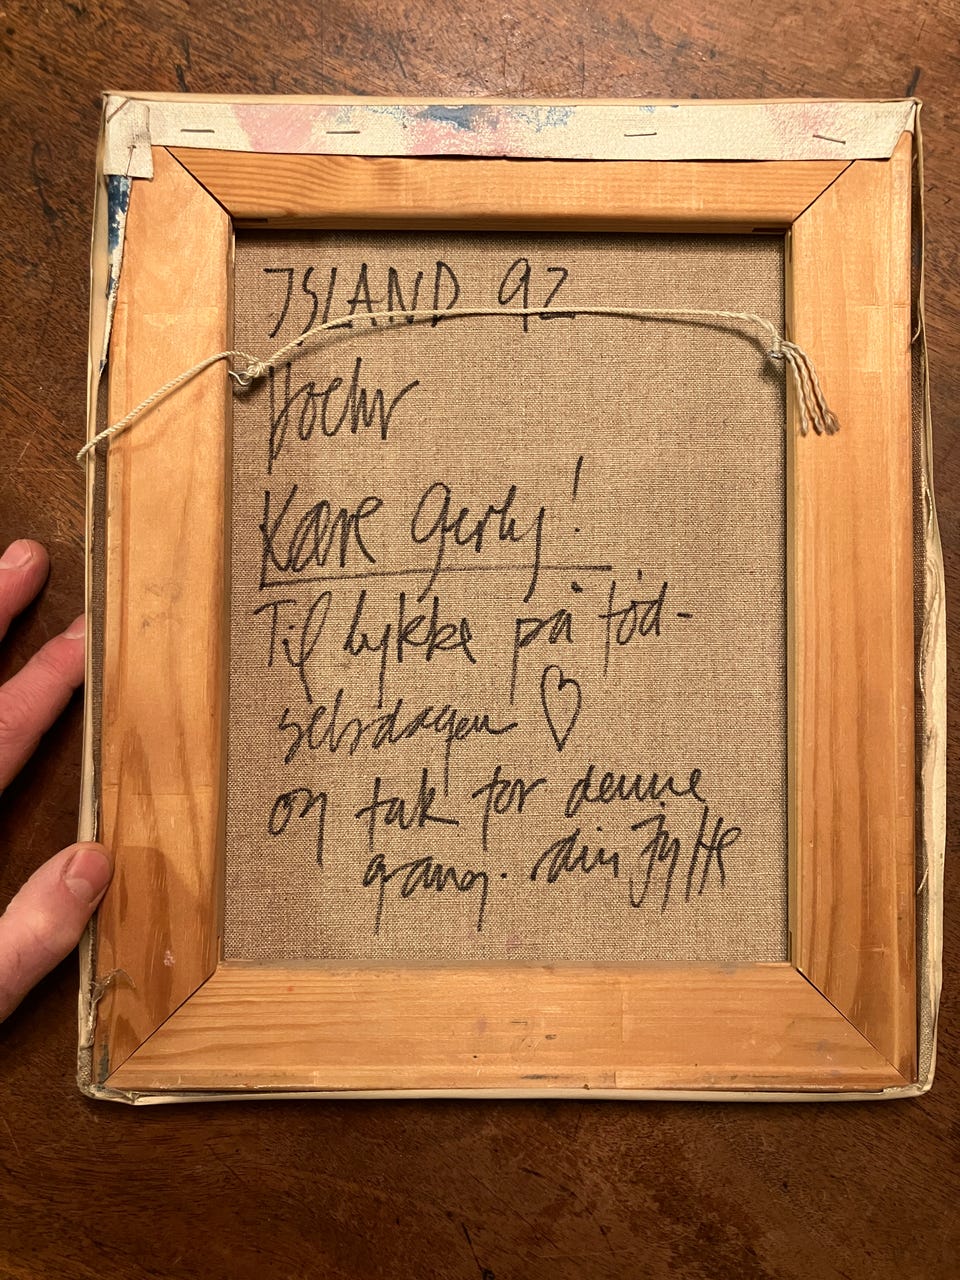 ISLAND 92
Kære Gerly!
Til lykke på fød-
selsdagen
og tak for denne
gang. din